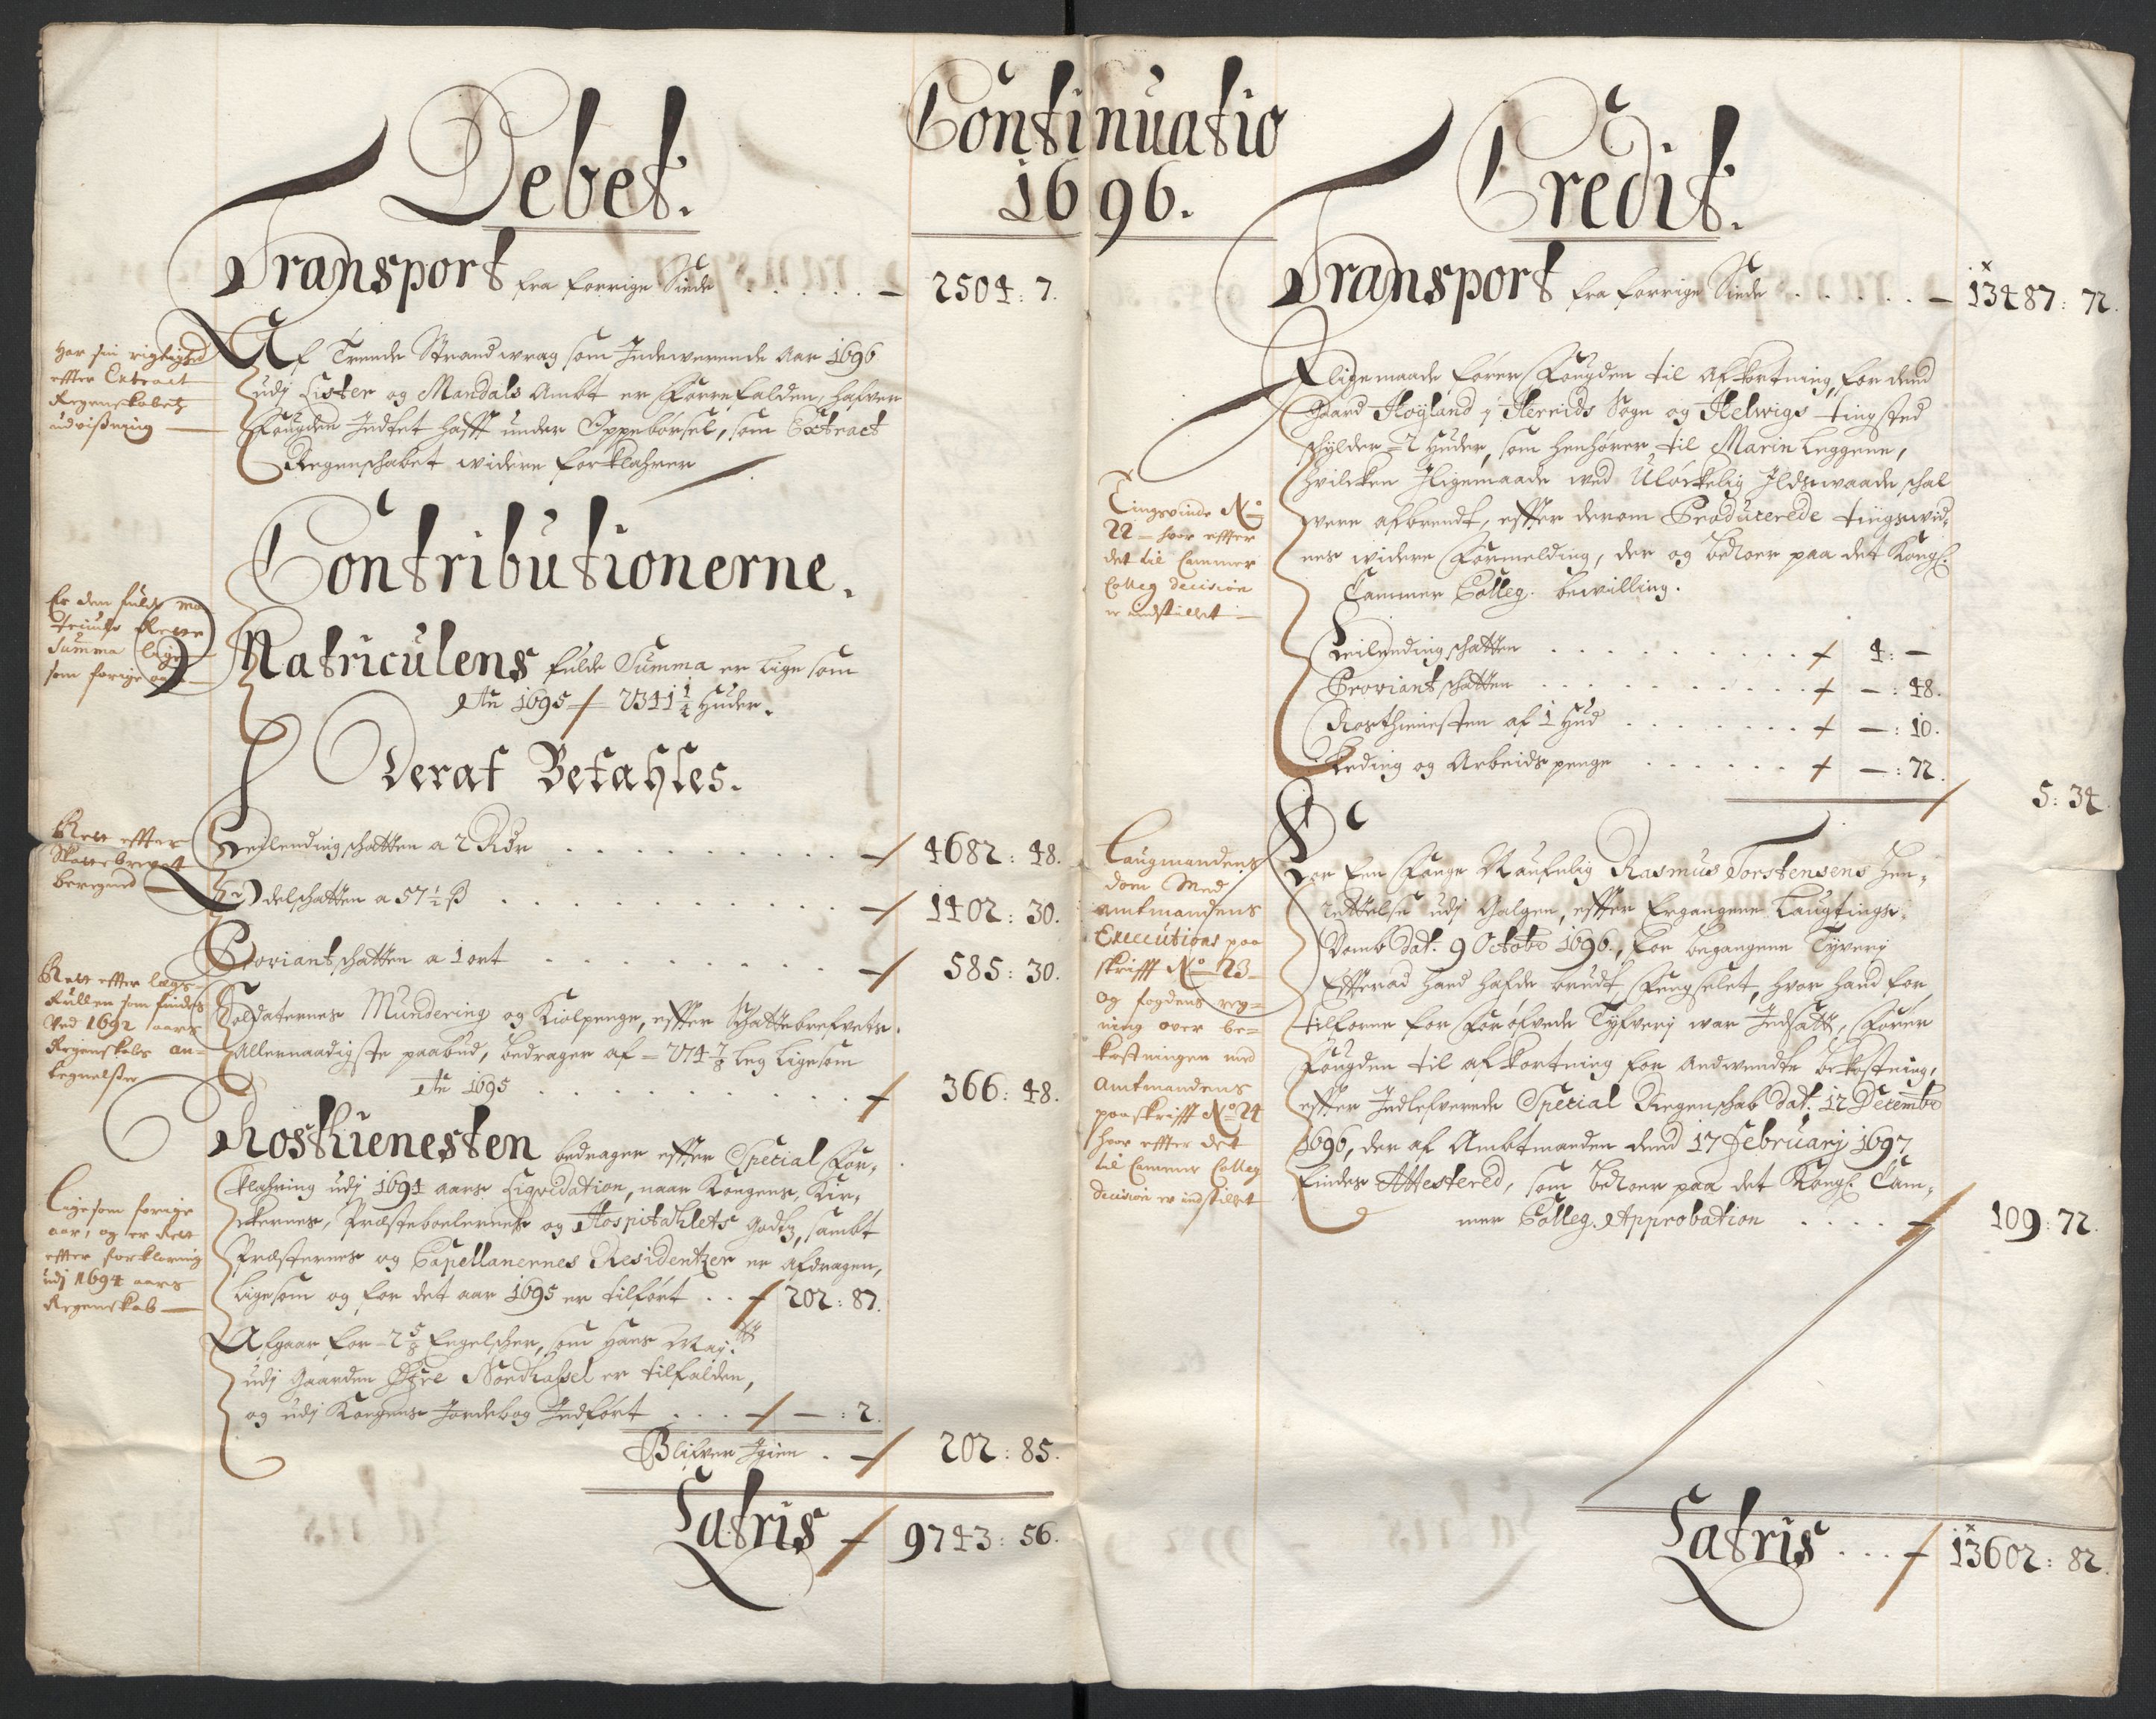 Continuatio
1696.
Debet.
Transport fra forrige Siide . . . . . — 2504: 7.
Har sin rigtighed
effter Extract
Regenskabetz
udvißning —
Af Trende Strandwrag som Indewerende Aar 1696
udj Lister og Mandals Ambt er Forrefalden, hafver
Fougden Indtet hafft under Oppebörsel, som Extract
Regenschabet widere forklahrer
Contributionerne.
Er den fulde Ma
Summa lige
som forige aar —
Matriculens fulde Summa er lige som
Ao 1695 — 2341 1/4 Huder.
Deraf Betahles.
Rett effter
Skattebrevet
beregned —
Leilendingschatten a 2 Rdr . . . . . . . . 4682: 48.
Odelschatten a 57 1/2 ß . . . . . . . . 1402: 30.
Proviantschatten a 1 ort . . . . . . . . 585: 30.
Rett effter lægs
Rullen som findes
Ved 1692 aars
Regenskabs an-
tegnelßer
Soldaternes Mundering og Kiolpenge, effter Schattebrefvets
Allernaadigste paabud, bedrager af = 274 7/8 leg ligesom
Ao 1695 . . . . . . . . 366: 48.
Rosthienesten bedrager effter Special For-
klahring udj 1694 aars Liqvidation, naar Kongens, Kir-
kernes, Præsteboelernes og Hospitahlets godtz, sambt
Præsternes og Capellanernes Residentzer er afdragen,
ligesom og for det aar 1695 er tilfört . . 202: 87.
Ligesom forige
aar, og er Rett
effter forklaring
udj 1694 aars
Regenskab —
Afgaar for - 2 5/8 Engelscher, som Hans Maytt
udj Gaarden Øfre Nordhassel er tilfalden,
og udj Kongens Jordebog Indfört . . . — : 2.
Blifver Igien . 202: 85.
Latris 9743: 56.
Credit.
Transport fra forrige Siide . . . . . . — 13487: 72.
Iligemaade förer Fougden til Afkortning, for dend
Gaard Höyland j Herrids Sogn og Helwigs tingsted
schylder = 2 Huder, som henhörer til Marin Leggene,
hvilcken Iligemaade wed Ulöckelig Ildswaade schal
were afbrendt, effter derom Producerede tingswid-
nes widere Formelding, der og beroer paa det Kongl:
Cammer Colleg. bewilling.
Tingsvinde No
22 — hvor effter
det til Cammer
Colleg decision
er indstillet —
Leilendingschatten . . . . . . . . . 4: —
Proviantschatten . . . . . . . . . — : 48.
Rosthienesten af 1 Hud . . . . . . . — : 10.
Leding og Arbeidspenge . . . . . . — : 72.
5: 34.
Laugmandens
dom Med
amtmandens
Executions paa
skrifft No 23 —
og fogdens reg-
ning over be-
kostningen med
Amtmandens
paaskrifft No 24
hvor effter det
til Cammer Colleg
decision er indstillet
For Een Fange Naufnlig Rasmus Torstensens Hen-
rettelse udj Galgen, effter Ergangene Laugtings-
Domb dat. 9 Octobr 1696, for begangene Tyverj
Efftterad hand hafde brudt Fengselet, hvor hand for
tilforne for Foröfvede Tyfverj war Indsatt, Förer
Fougden til afkortning for Andwendte bekostning,
effter Indlefverede Special Regenschab dat. 12 Decembr
1696, der af Ambtmanden dend 17 February 1697
findes Attestered, som beroer paa det Kongl: Cam-
mer Colleg. Approbation . . . . 109: 72.
Latris . . . 13602: 82.